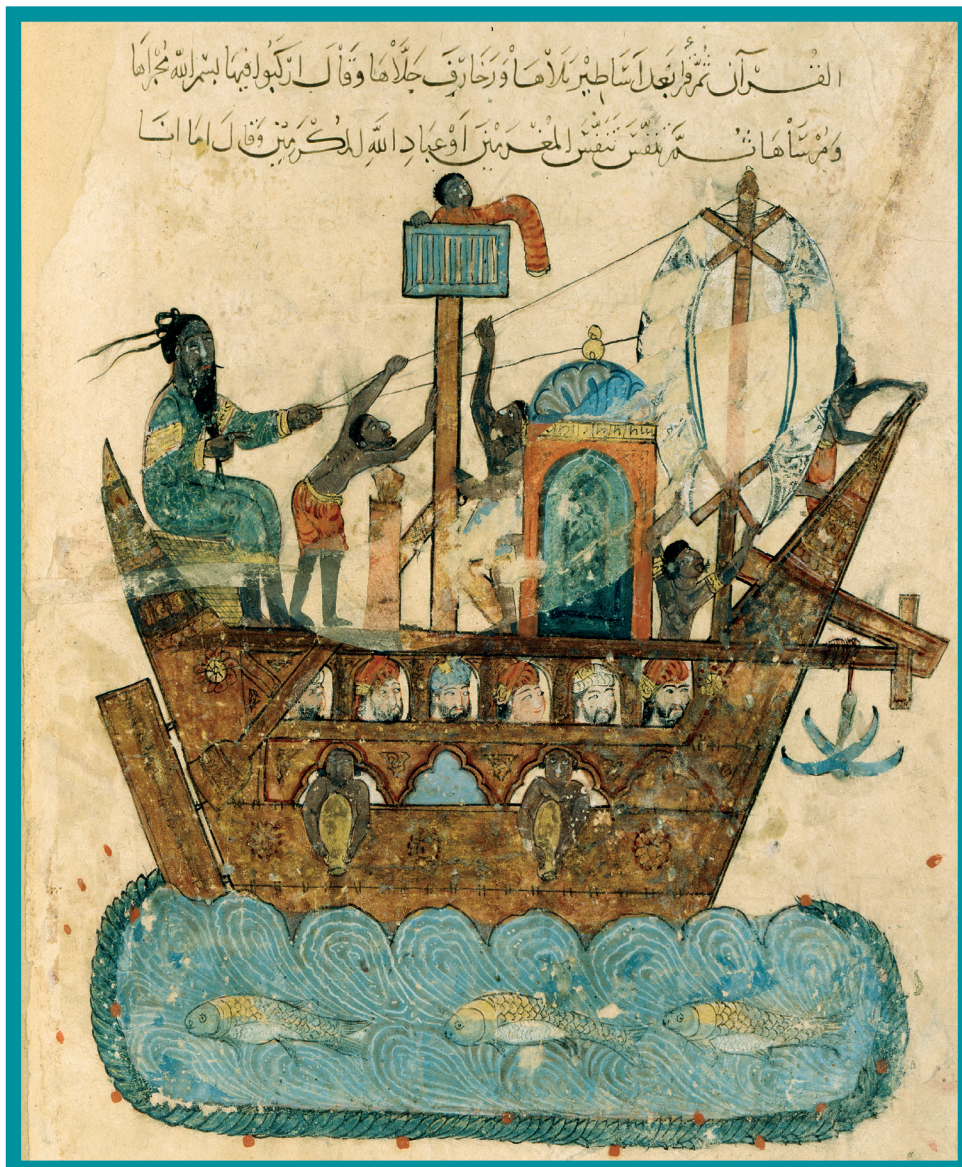 القرآن ثم قرأ بعد اساطير تلاها وزخارف جلاها وقال اركبوا فيها بسم الله مجراها
ومرساها ثم تنفس تنفس المغرمين او عباد الله المكرمين وقال اما انا